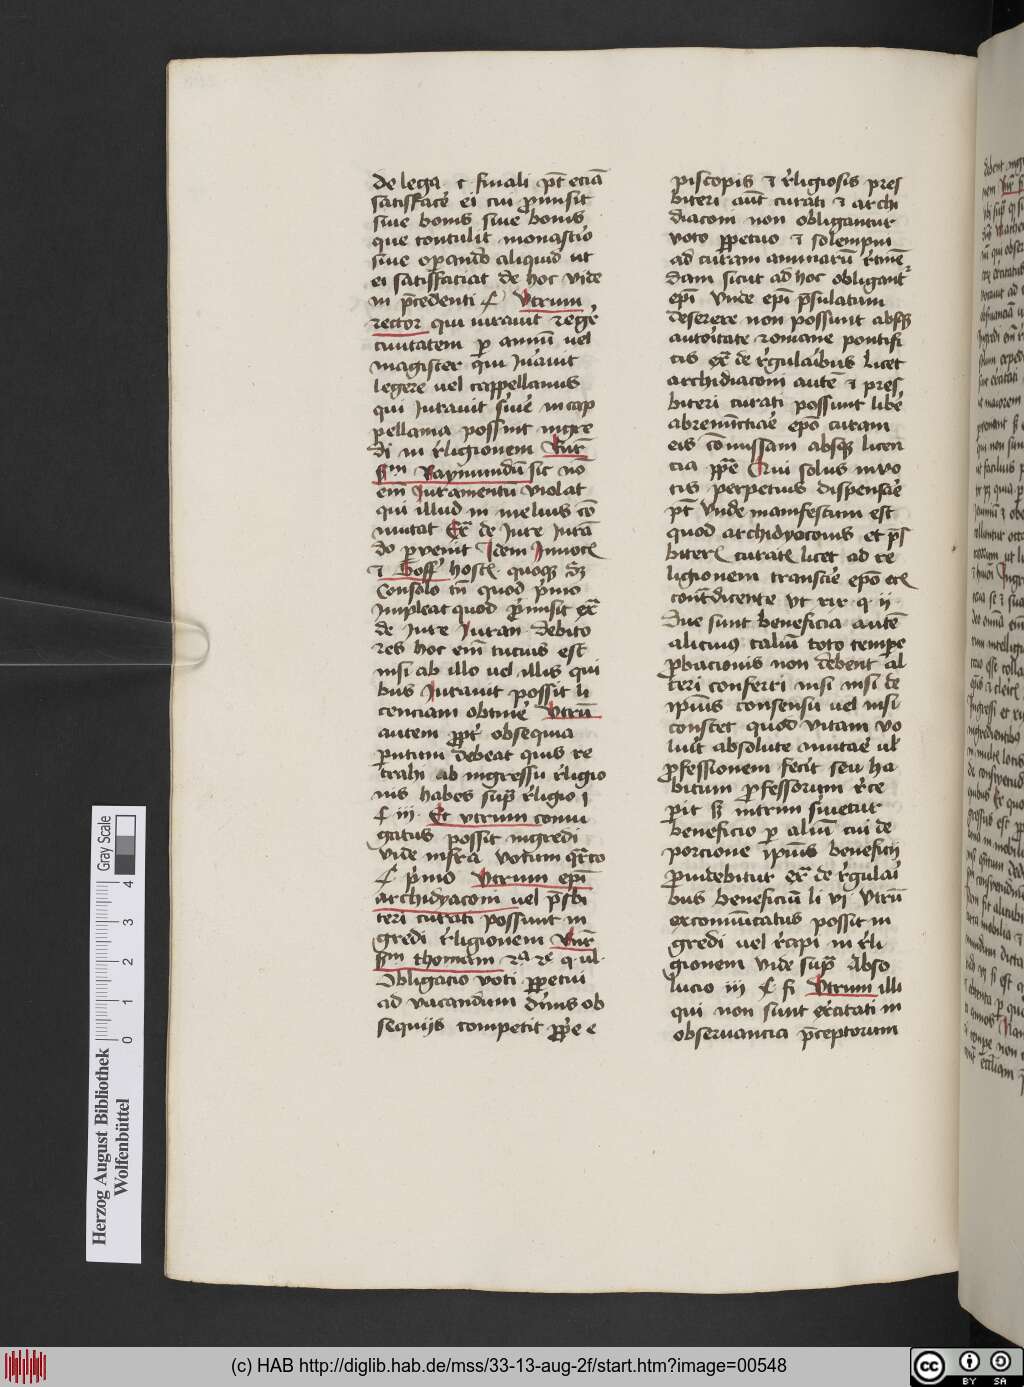 de lega. et finali pt̄ eciā
satisffacē ei cui ꝓmisit
siue bonis siue bonis
que contulit monastīo
siue oꝑando aliquid ut
ei satisffaciat de hoc vide
in p̄cedenti ¶ Vtrum
rector qui iurauit regēr
ciuitatem ꝑ annū uel
magister qui Iu̇auit
legere uel cappellanus
qui Iurauit siue in cap
pellania possint ingre
di in rͤligionem Rūr
sm̄ Raymundū sic nō
em̄ Iuramentū violat
qui illud in melius cō
mutat Ex̄ de Iure Iurā
do ꝑvenit Idem Innocē
⁊ Goff̄ hostē quoqꝫ dꝫ
Consolo tn̄ quod p̄mo
impleat quod ꝓmisit ex̄
de Iure Iuran debito
res hoc em̄ tucius est
nisi ab illo uel illis qui
bus Iurauit possit li
cenciam obtinē Vtrū
autem ꝓpt̄ obsequia
pn̄tum debeat quis re
trahi ab ingressu rͤligio
nis habes supͣ rͤligio j
¶ iii Et vtrum coniu
gatus possit ingredi
vide infra votum qrͣto
¶ p̄mo Vtrum epī
archidyaconi uel p̄sbi
teri curati possunt in
gredi rͤligionem Rūr
sm̄ thomam 2ª 2e q ul.
Obligatio voti ꝑpetui
ad vacandum diuīs ob
sequijs competit ꝓpͤe e
piscopis ⁊ rͤligiosis pres
biteri aūt curati ⁊ archi
diaconi non obligantur
voto ꝑpetuo ⁊ solempni
ad curam animarū rͤtinē
dam sicut ad hoc obligant᷑
epī Vnde epī p̄sulatum
deserere non possunt absqꝫ
autoītate romane pontifi
cis ex̄ de rͤgulaībus licet
archidiaconi autē ⁊ pres
biteri curati possunt libē
abrenūctiāe epō curam
eis cōmissam absqꝫ licen
cia ppͤe Qui solus in vo
tis perpetuis dispensāe
pt̄ Vnde manifestum est
quod archidyaconis et ps̄
biterꝭ curatꝭ licet ad re
ligionem transiē epō etꝭ
cont̄dicente Vt xix q ii
Due sunt beneficia autē
alicuiꝰ taliū toto tempe
ꝓbacionis non debent al
teri conferri nisi nisi de
ipīus consensu uel nisi
constet quod vitam vo
luīt absolute mutāe ul̓
ꝓfessionem fecit seu ha
bitum ꝓfessorum rͤce
ꝑit sꝫ intrim s̓uietur
beneficio ꝑ aliū cui de
porcione ipīus beneficij
ꝓuidebitur ex̄ de rͤgulaī
bus beneficiū li vi Vtrū
excomūicatus possit in
gredi uel rͤcipi in rͤli
gionem vide supͣ Abso
lucio iii ¶ fi Vtrum illi
qui non sunt ex̓citati in
obseruancia p̄ceptorum
Herzog August Bibliothek
Wolfenbüttel
0 1 2 3 4
Gray Scale
(c) HAB http://diglib.hab.de/mss/33-13-aug-2f/start.htm?image=00548
cc BY SA